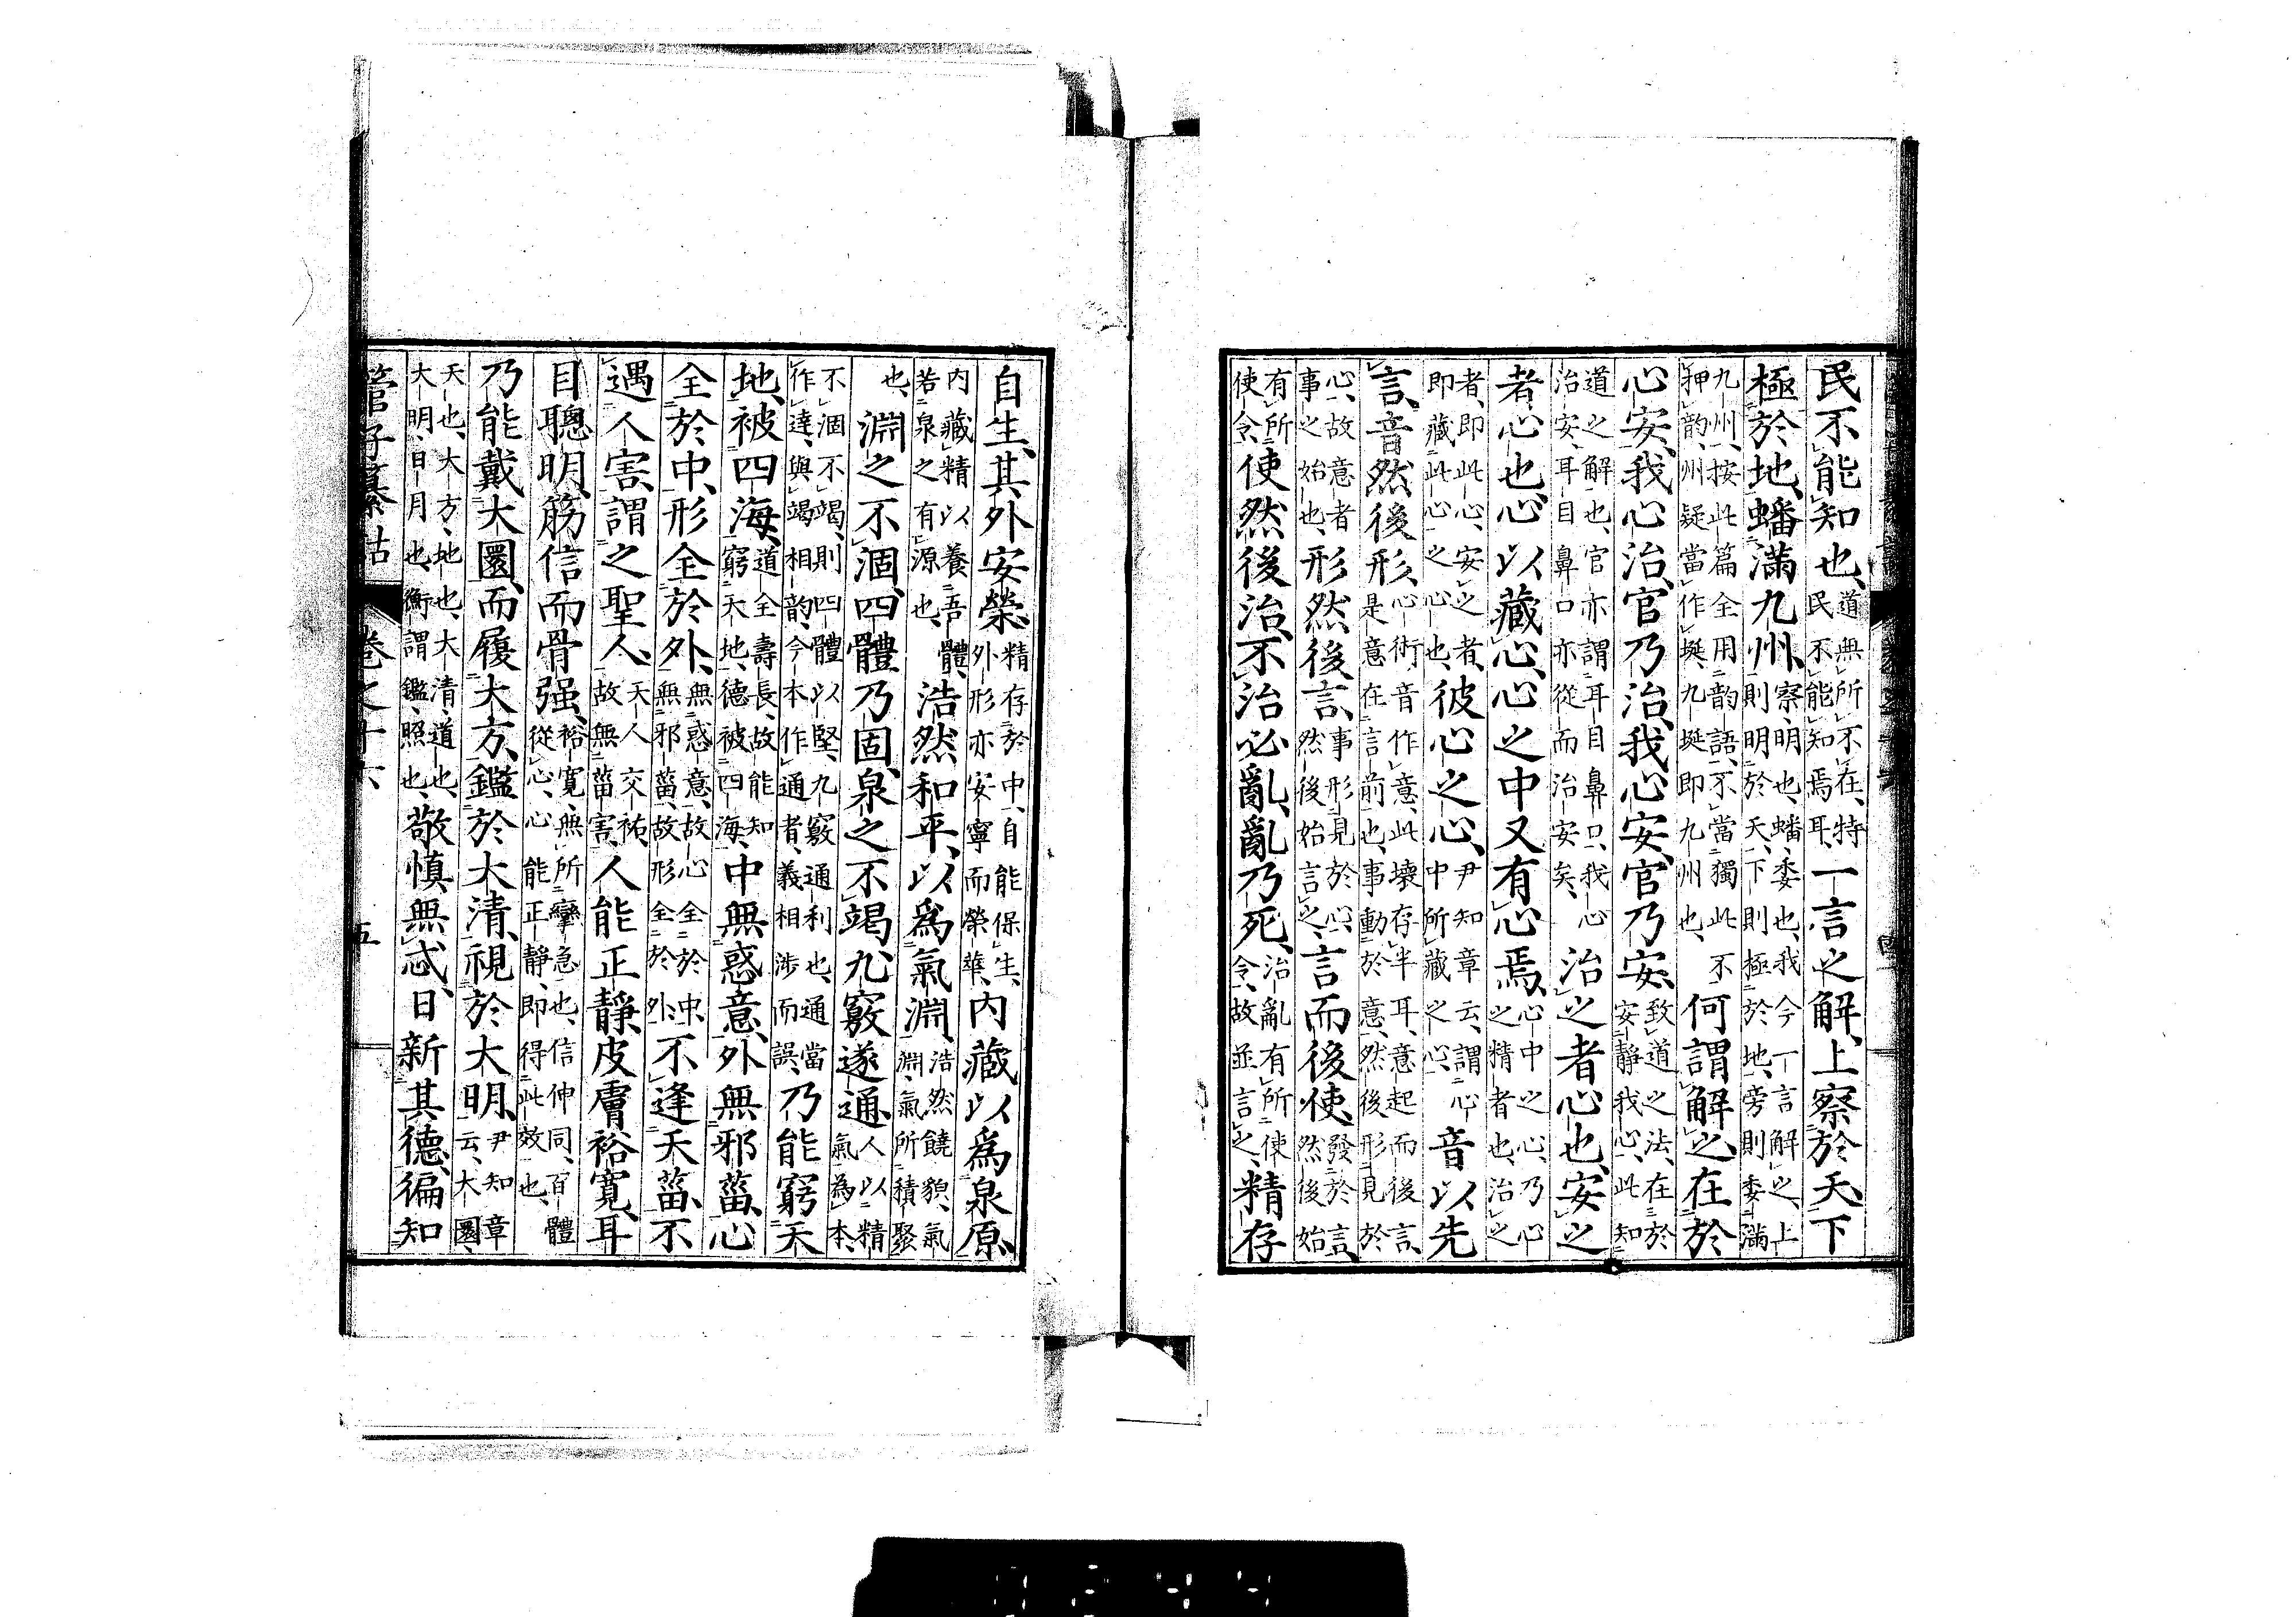 民不能知也、道無所不在、特民不能知焉耳、一言之解、上察於天、下
極於地、蟠滿九州、察、明也、蟠、委也、我今一言解之、上則明於天、下則極於地、旁則委滿
九州、按此篇全用韵語、不當獨此不押韵、州疑當作埏、九埏即九州也、何謂解之、在於
心安、我心治、官乃治、我心安、官乃安、致道之法、在於安靜我心、此知
道之解也、官亦謂耳目鼻口、我心治安、耳目鼻口亦從而治安矣、治之者心也、安之
者心也、心以藏心、心之中又有心焉、心中之心、乃心之精者也、治之
者、即此心、安之者、即藏此心之心也、彼心之心、尹知章云、謂心中所藏之心、音以先
言、音然後形、心術、音作意、此壞存半耳、意起而後言、是意在言前也、事動於意、然後形見於
心、故意者事之始也、形然後言、事形見於心、然後始言之、言而後使、發於言、然後始
有所使令、使然後治、不治必亂、亂乃死、治亂有所使令、故並言之、精存
自生、其外安榮、精存於中、自能保生、外形亦安寧而榮華、內藏以爲泉原、
內藏精以養吾體、若泉之有源也、浩然和平、以爲氣淵、浩然饒貌、氣淵、氣所積聚
也、淵之不涸、四體乃固、泉之不竭、九竅遂通、人以精氣為本、
不涸不竭、則四體以堅、九竅通利也、通當作達、與竭相韵、今本作通者、義相涉而誤、乃能窮天
地、被四海、道全壽長、故能知窮天地、德被四海、中無惑意、外無邪菑、心
全於中、形全於外、無惑意、故心全於中、無邪菑、故形全於外、不逢天菑、不
遇人害、謂之聖人、天人交祐、故無菑害、人能正靜、皮膚裕寬、耳
目聰明、筋信而骨强、裕寬、無所攣急也、信伸同、百體從心、心能正靜、即得此效也、
乃能戴大圜、而履大方、鑑於大清、視於大明、尹知章云、大圜、
天也、大方、地也、大清、道也、大明、日月也、衡謂鑑、照也、敬慎無忒、日新其德、徧知
管子纂詁 卷之十六 五